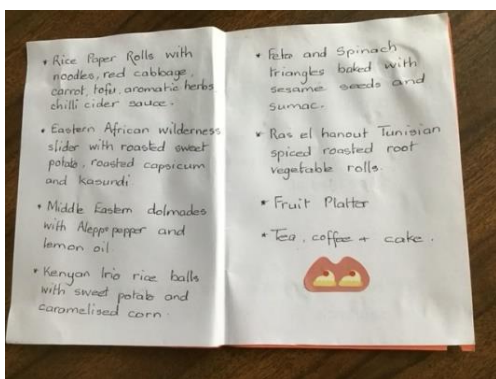 • Rice Paper Rolls with
noodles, red cabbage,
carrot, tofu, aromatic herbs
chilli cider sauce.
• Eastern African wilderness
slider with roasted sweet
potato, roasted capsicum
and kasundi
• Middle Eastern dolmades
with Aleppo pepper and
lemon oil.
• Kenyan Irio rice balls
with sweet potato and
caramelised corn.
• Feta and Spinach
triangles baked with
sesame seeds and
sumac.
• Ras el hanout Tunisian
spiced roasted root
vegetable rolls.
• Fruit Platter
• Tea, coffee + cake.